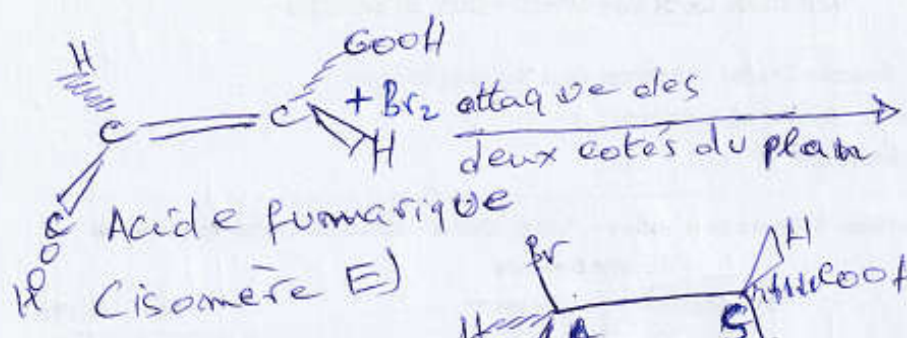 H COOH
C C + Br2 attaque des
H deux cotés du plan
C Acide fumarique
HOO (isomère E)
Br H
H COOH
S